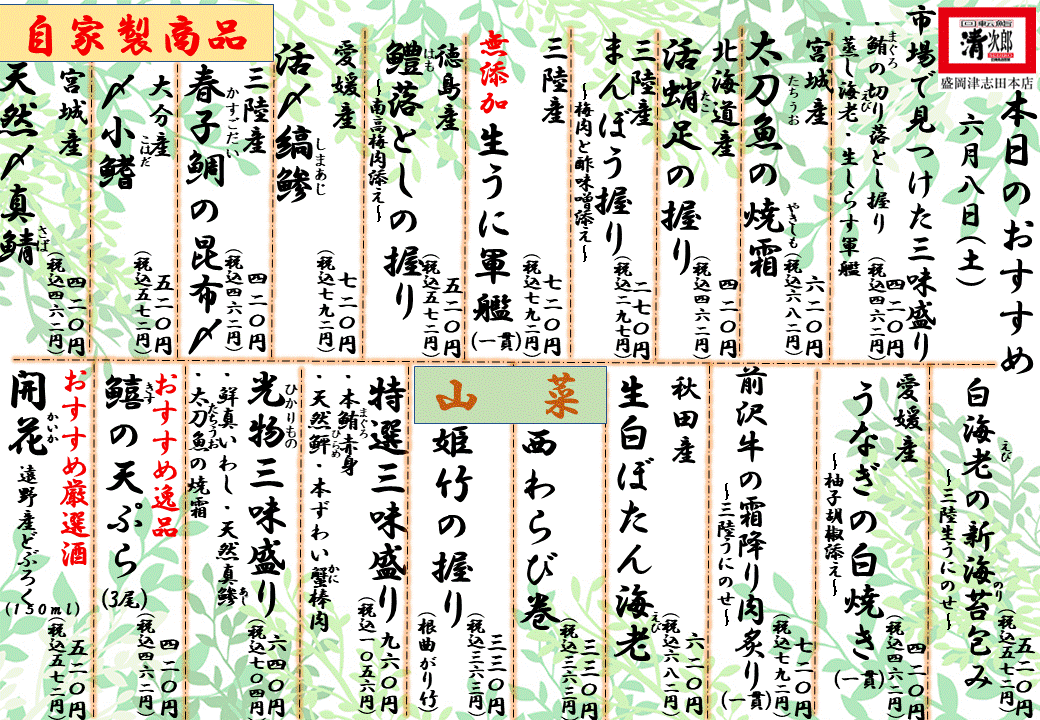 回転鮨
清次郎
盛岡津志田本店
本日のおすすめ
六月八日(土)
市場で見つけた三味盛り
・鮪の切り落とし握り
まぐろ
・蒸し海老・生しらす軍艦
えび
四二〇円
(税込四六二円)
宮城産
太刀魚の焼霜
たちうお
やきしも
六二〇円
(税込六八二円)
北海道産
活蛸足の握り
たこ
四二〇円
(税込四六二円)
三陸産
まんぼう握り
~梅肉と酢味噌添え~
二七〇円
(税込二九七円)
三陸産
無添加 生うに軍艦
(一貫)
七二〇円
(税込七九二円)
徳島産
鱧落としの握り
はも
~南高梅肉添え~
五二〇円
(税込五七二円)
愛媛産
活〆縞鯵
しまあじ
七二〇円
(税込七九二円)
自家製商品
三陸産
春子鯛の昆布〆
かすごだい
四二〇円
(税込四六二円)
大分産
〆小鰭
こはだ
五二〇円
(税込五七二円)
宮城産
天然〆真鯖
さば
四二〇円
(税込四六二円)
白海老の新海苔包み
えび
のり
~三陸生うにのせ~
五二〇円
(税込五七二円)
愛媛産
うなぎの白焼き
~柚子胡椒添え~
(一貫)
四二〇円
(税込四六二円)
前沢牛の霜降り肉炙り
~三陸うにのせ~
(一貫)
七二〇円
(税込七九二円)
秋田産
生白ぼたん海老
えび
六二〇円
(税込六八二円)
山菜
西わらび巻
三三〇円
(税込三六三円)
姫竹の握り
(根曲がり竹)
三三〇円
(税込三六三円)
特選三味盛り
・本鮪赤身
まぐろ
・天然鮃・本ずわい蟹棒肉
ひらめ
かに
九六〇円
(税込一〇五六円)
光物三味盛り
ひかりもの
・鮮真いわし・天然真鯵
あじ
・太刀魚の焼霜
たちうお
六四〇円
(税込七〇四円)
おすすめ逸品
鱚の天ぷら
きす
(3尾)
四二〇円
(税込四六二円)
おすすめ厳選酒
開花
かいか
遠野産どぶろく
(150ml)
五二〇円
(税込五七二円)